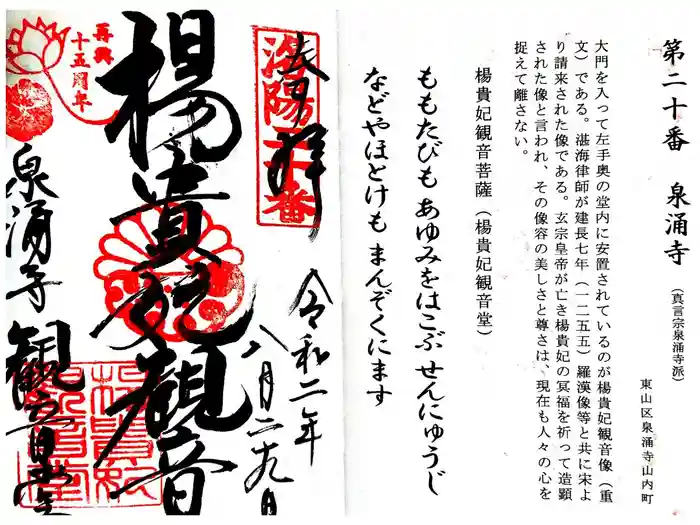 第二十番 泉涌寺
(真言宗泉涌寺派)
東山区泉涌寺山内町
大門を入って左手奥の堂内に安置されているのが楊貴妃観音像(重
文)である。湛海律師が建長七年(一二五五)羅漢像等と共に宋よ
り請来された像である。玄宗皇帝が亡き楊貴妃の冥福を祈って造顕
された像と言われ、その像容の美しさと尊さは、現在も人々の心を
捉えて離さない。
楊貴妃観音菩薩(楊貴妃観音堂)
ももたびも あゆみをはこぶ せんにゅうじ
などやほとけも まんぞくにます
奉拝
洛陽二十番
令和二年
八月二十九日
楊貴妃観音
再興
十五周年
泉涌寺 観音堂